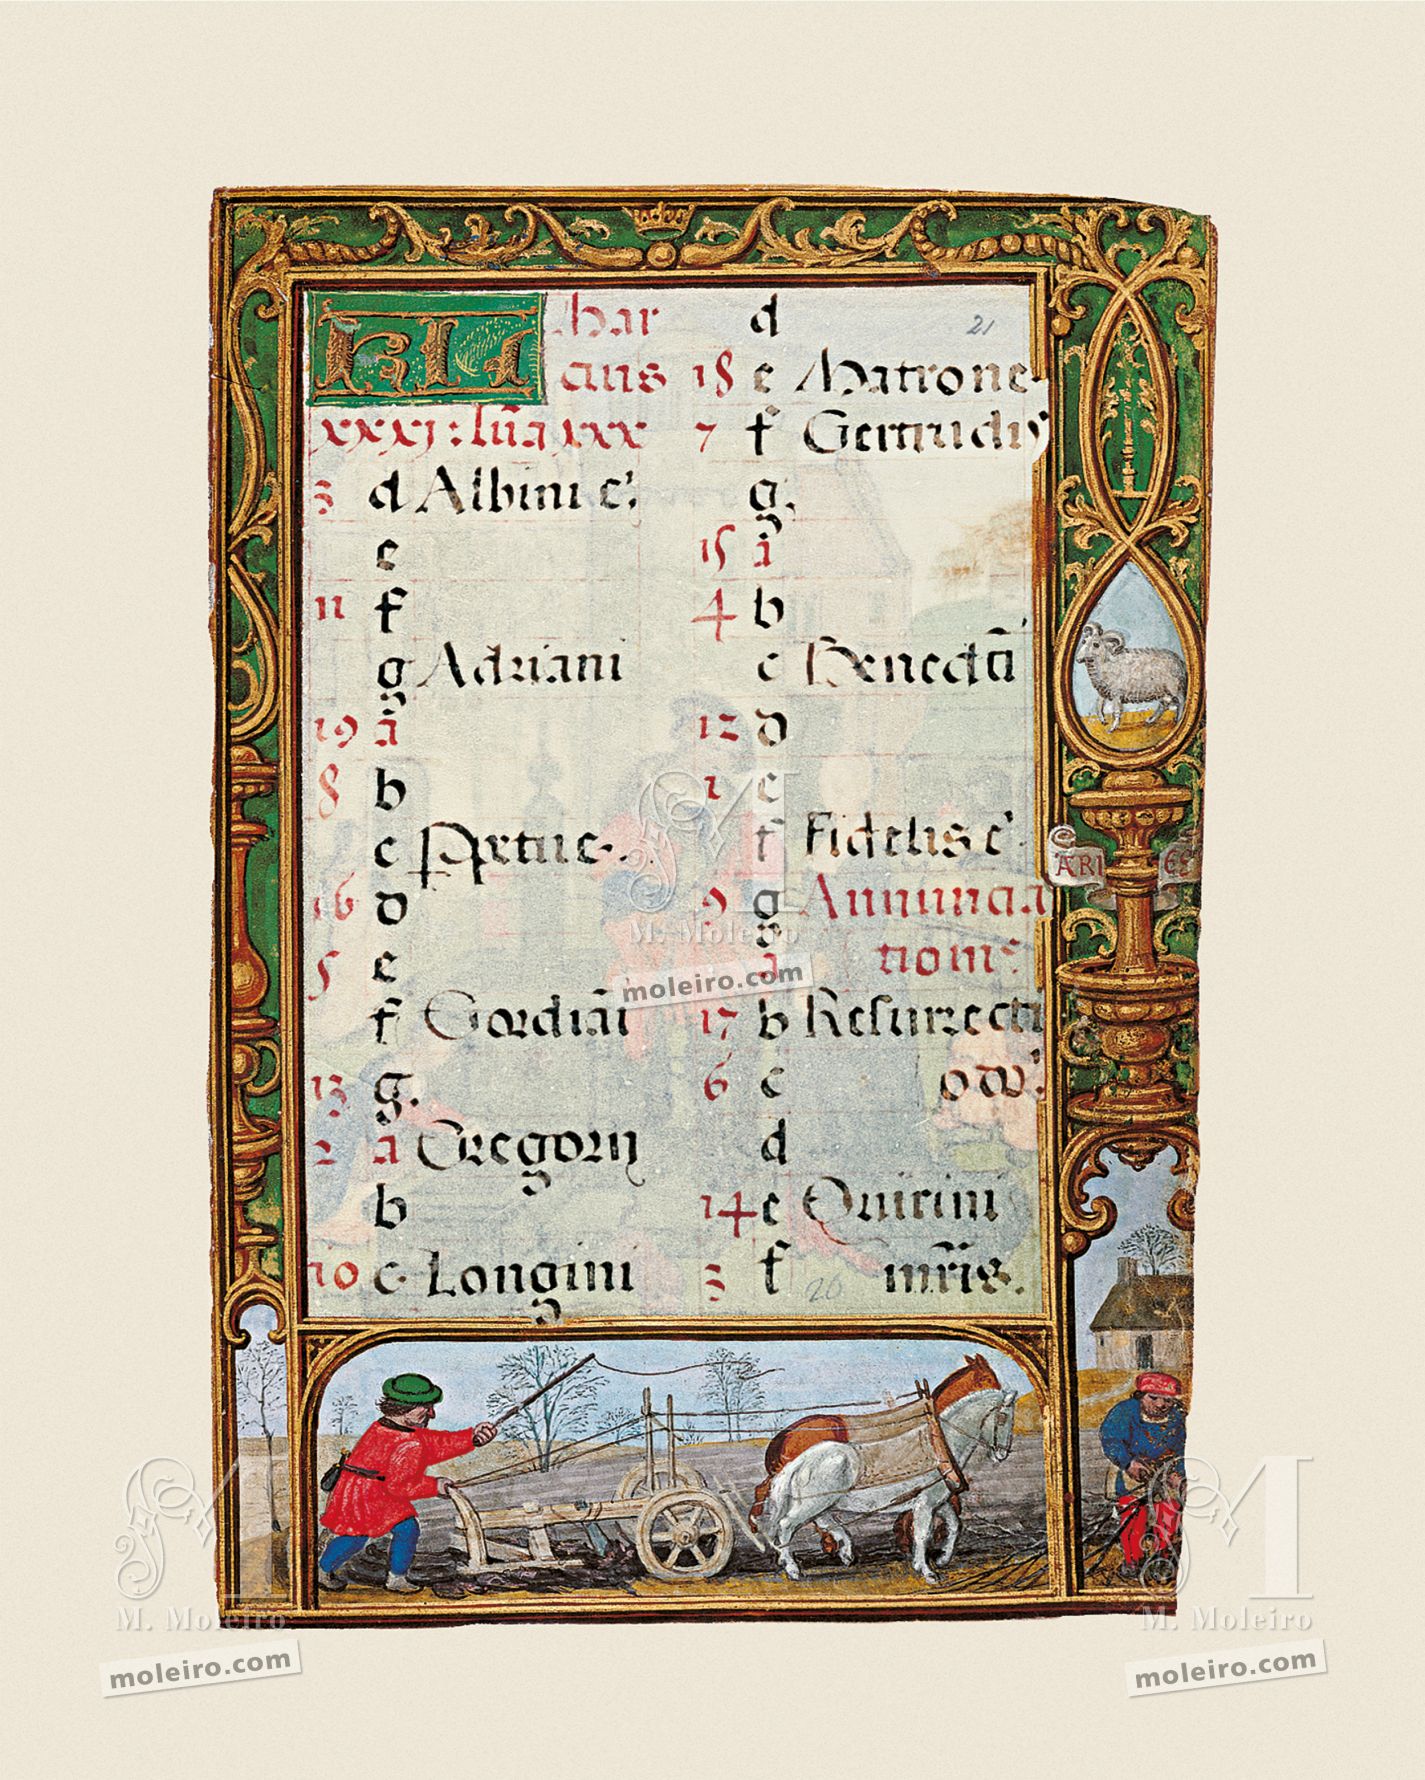 KL Mar
cius
xxxj: lũa xxx
3 d Albini e'.
e
11 f
g Adriani
19 a
8 b
c Perpetue.
16 d
5 e
f Gordiãi
13 g.
2 a Gregorij
b
10 c. Longini
d
18 e Matrone.
7 f Gertrudis
g.
15 a
4 b
c Benedcti
12 d
1 e
f Fidelis e'
9 g Annuncia
a tionis
17 b Resurrecti
6 c o dñi.
d
14 e Quirini
3 f mr̃is.
21
26
ARI ES
M. Moleiro
moleiro.com
M. Moleiro
moleiro.com
M. Moleiro
moleiro.com